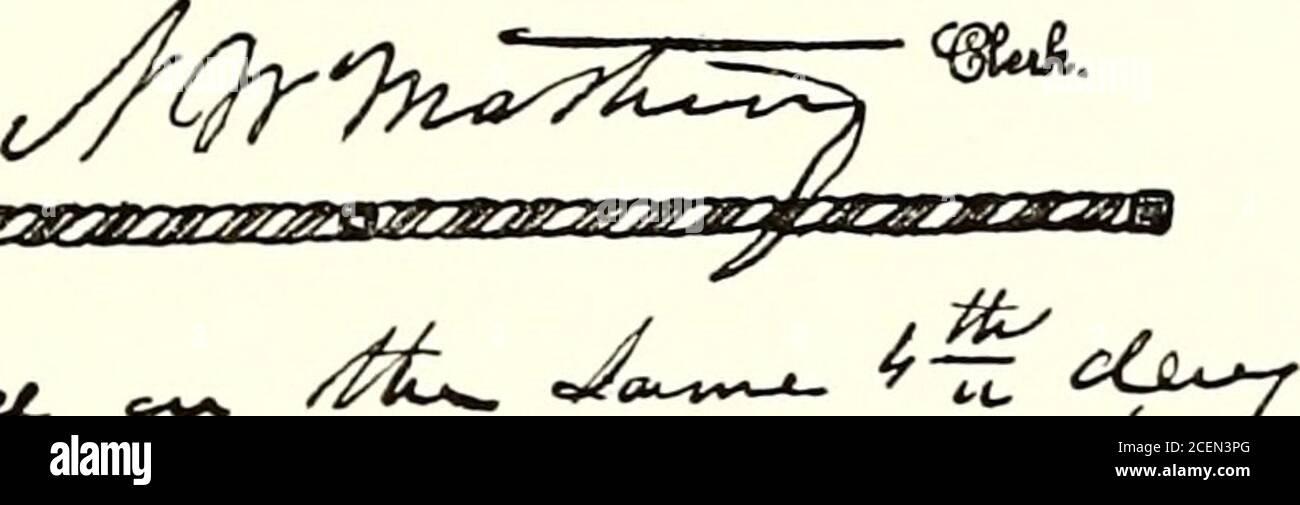 N W Matheny Clerk.
on the same 4th day
alamy
Image ID: 2CEN3PG
www.alamy.com